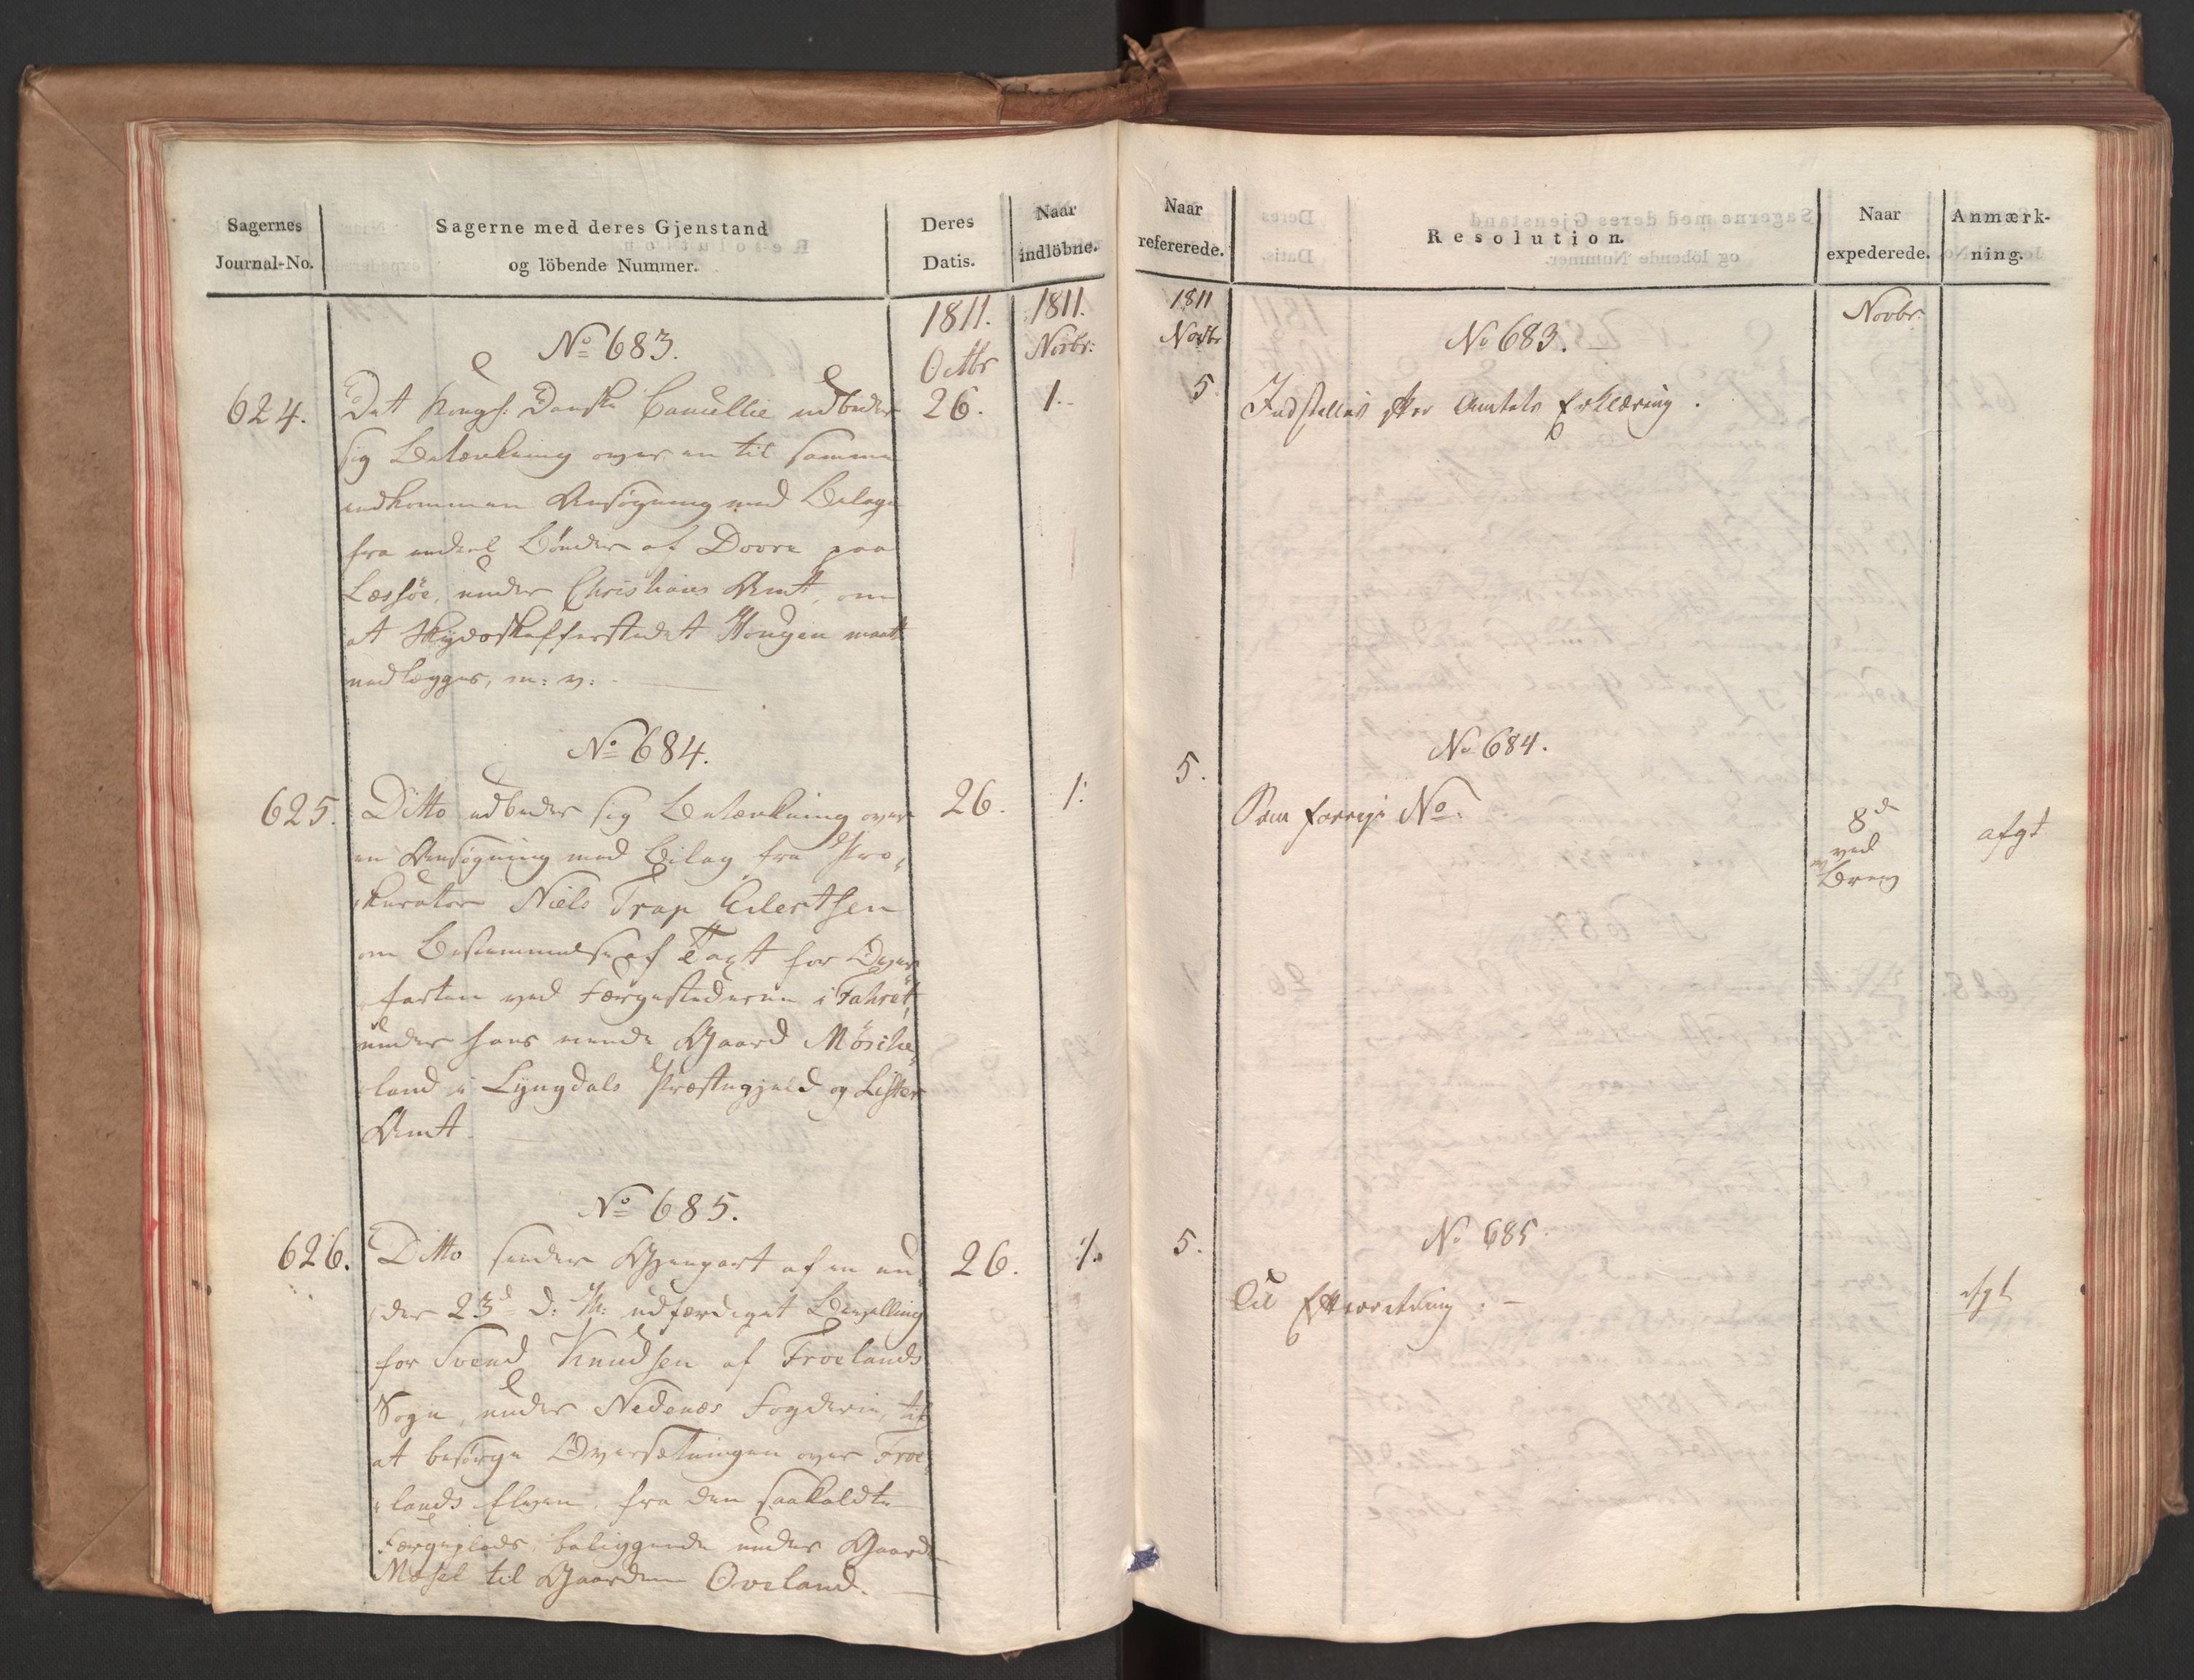 Sagernes
Journal-No.
Sagerne med deres Gjenstand
og löbende Nummer.
Deres
Datis.
Naar
indlöbne.
1811.
Octbr
1811.
Novbr:
No 683.
624. Det Kongl: Danske Cancellie udbeder 26. 1.
sig Betænkning over en til samme
indkommen Ansøgning med Bilage
fra endeel Bønder af Dovre paa
Læssöe, under Christians Amt, om
at Skydsskafferstedet Hougen maatte
nedlægges, m: v:
No 684.
625. Ditto udbeder sig Betænkning over 26. 1.
en Ansøgning med Bilag fra Pro-
kurator Niels Trap Eilertsen
om Bestemmelse af Taxt for Over
farten ved Færgestederne i Fahret,
under hans eiende Gaard Mösche,
land i Lyngdals Præstegjeld og Lister
Amt.
No 685.
626. Ditto sender Gjenpart af en un, 26. 1.
der 23d d: M: udfærdiget Bevilling
for Svend Knudsen af Froelands
Sogn, under Nedenæs Fogderie, til
at besørge Oversætningen over Froe,
lands Elven fra den saakaldte
Færgeplads, beliggende under Gaarden
Mæsel til Gaarden Oveland.
Naar
refererede.
Resolution.
Naar
expederede.
Anmærk-
ning.
1811
Novbr
Novbr.
No 683.
5. Indstilles efter Amtets Erklæring.
No 684.
5. Som forrige No. 8d
ved
Brev
afgt
No 685.
5. Til Efterretning. afgt